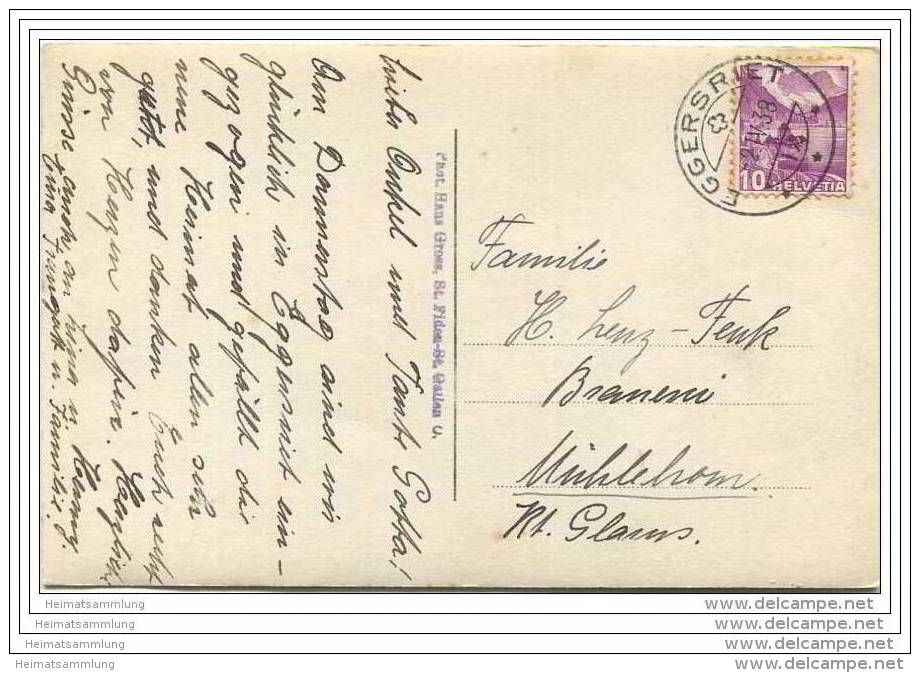 Liebe Onkel und Tante Gotta!
Am Donnerstag sind wir
glücklich in Eggersriet ein-
gezogen und gefällt die
neue Heimat allen sehr
gut, und danken Euch recht
von Herzen dafür. Herzlich
Grüsse
Familie.
Phot. Hans Gross, St. Fiden-St. Gallen O.
EGGERSRIET
10 HELVETIA
Familie
H. Lenz-Fenk
Brauerei
Mühlehorn.
Kt. Glarus.
Heimatsammlung
Heimatsammlung
Heimatsammlung
Heimatsammlung
www.delcampe.net
www.delcampe.net
www.delcampe.net
www.delcampe.net